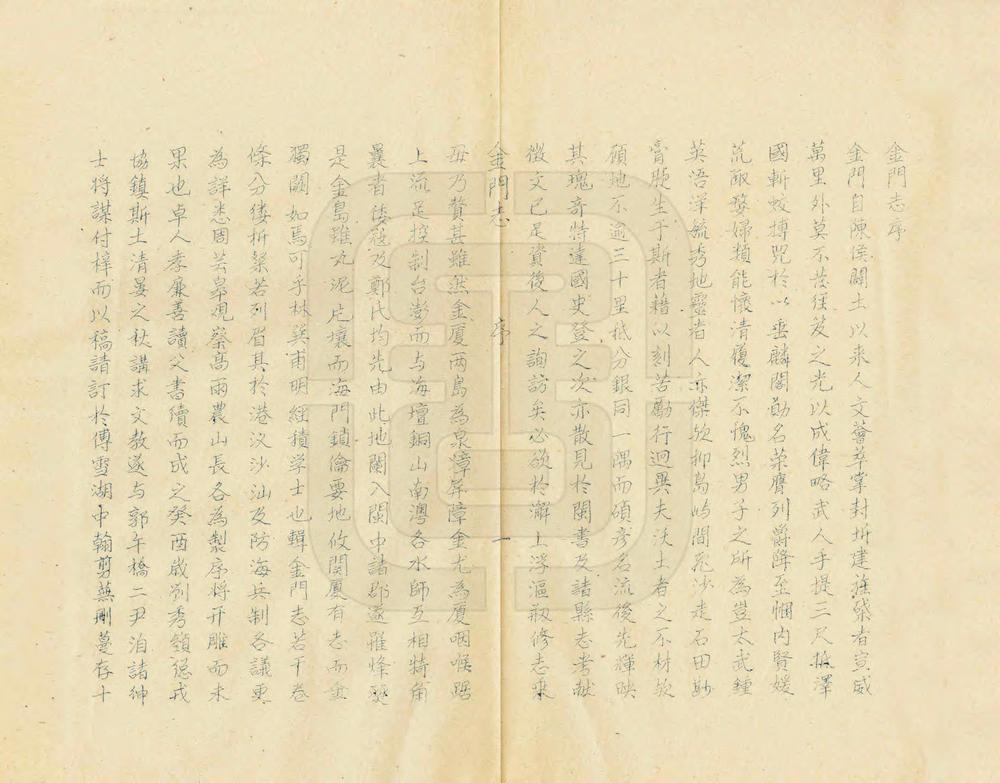 金門志序
金門自陳侯闢土以來人文薈萃掌封圻建旌棨者宣威
萬里外莫不茫筏笈之光以成偉略武人手提三尺抵澤
國斬蛟搏兕於以垂麟閣勛名榮膺列爵降至悃內賢媛
荒陬嫠婦類能懷清履潔不愧烈男子之所為豈太武鍾
英浯洋毓秀地靈者人亦傑歟抑島嶼間飛沙走石田尠
膏腴生于斯者藉以刻苦勵行迥異夫沃土者之不材歟
顧地不逾三十里祇分銀同一隅而碩彥名流後先輝映
其瑰奇特達國史登之次亦散見於閩書及諸縣志考獻
徵文已足資後人之詢訪矣必欲於澥上浮漚剏修志乘
金門志　序　一
毋乃贅甚雖然金廈両島為泉漳屏障金尤為廈咽喉踞
上流足控制台澎而与海壇銅山南澳各水師互相犄角
曩者倭寇及鄭氏均先由此地闌入閩中諸郡遂罹烽燹
是金島雖丸泥片壤而海門鎖鑰要地攸関廈有志而金
獨闕如焉可乎林巽甫明經積学士也輯金門志若干卷
條分縷析粲若列眉其於港汊沙汕及防海兵制各議更
為詳悉周芸皋觀察高雨農山長各為製序将开雕而未
果也卓人孝廉善讀父書續而成之癸酉歲劉秀領總戎
協鎮斯土清晏之秋講求文教遂与郭午橋二尹洎諸紳
士将謀付梓而以稿請訂於傅雪湖中翰剪蕪刪蔓存十